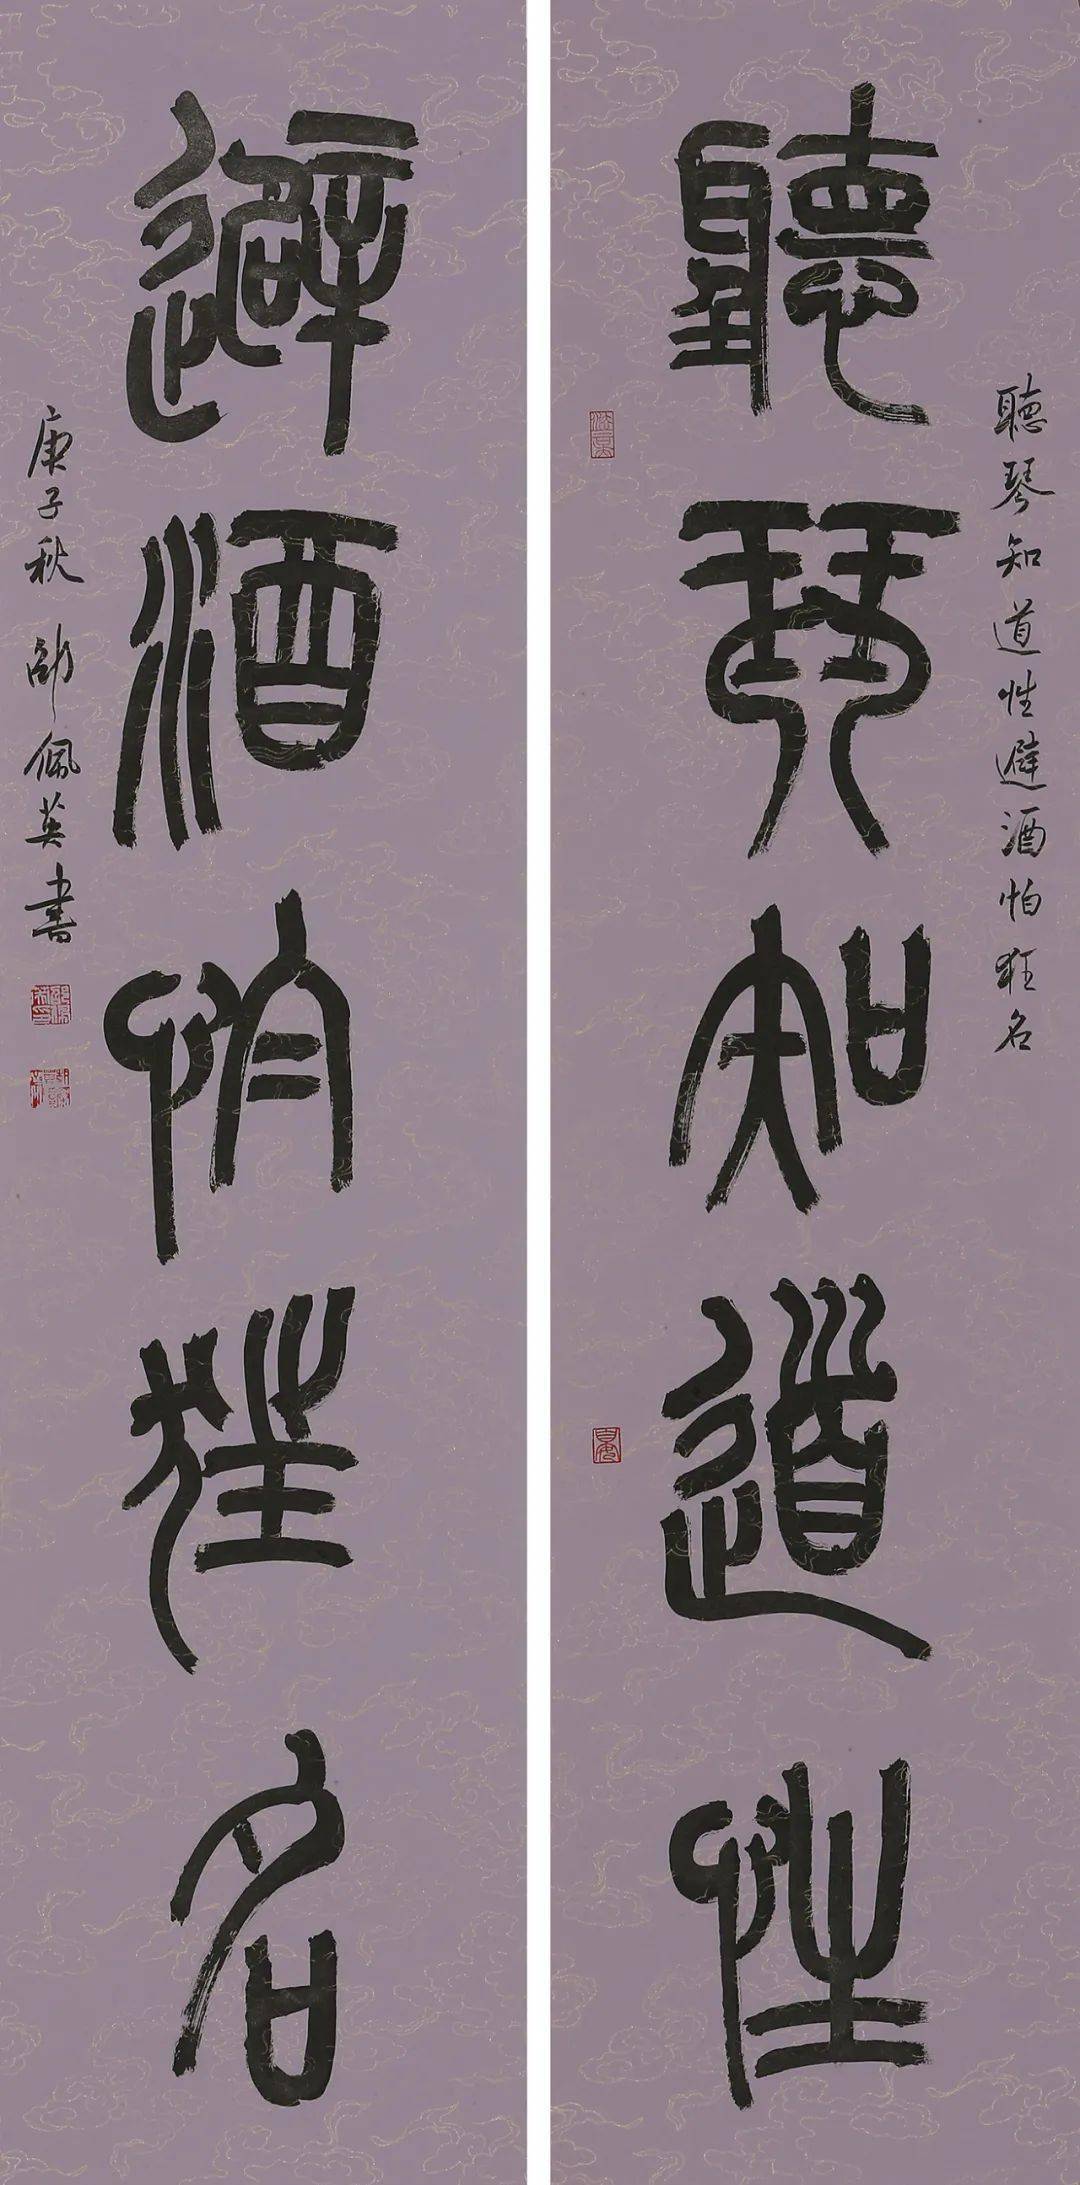 聽琴知道性避酒怕狂名
聽琴知道性
避酒怕狂名
庚子秋 邵佩英書